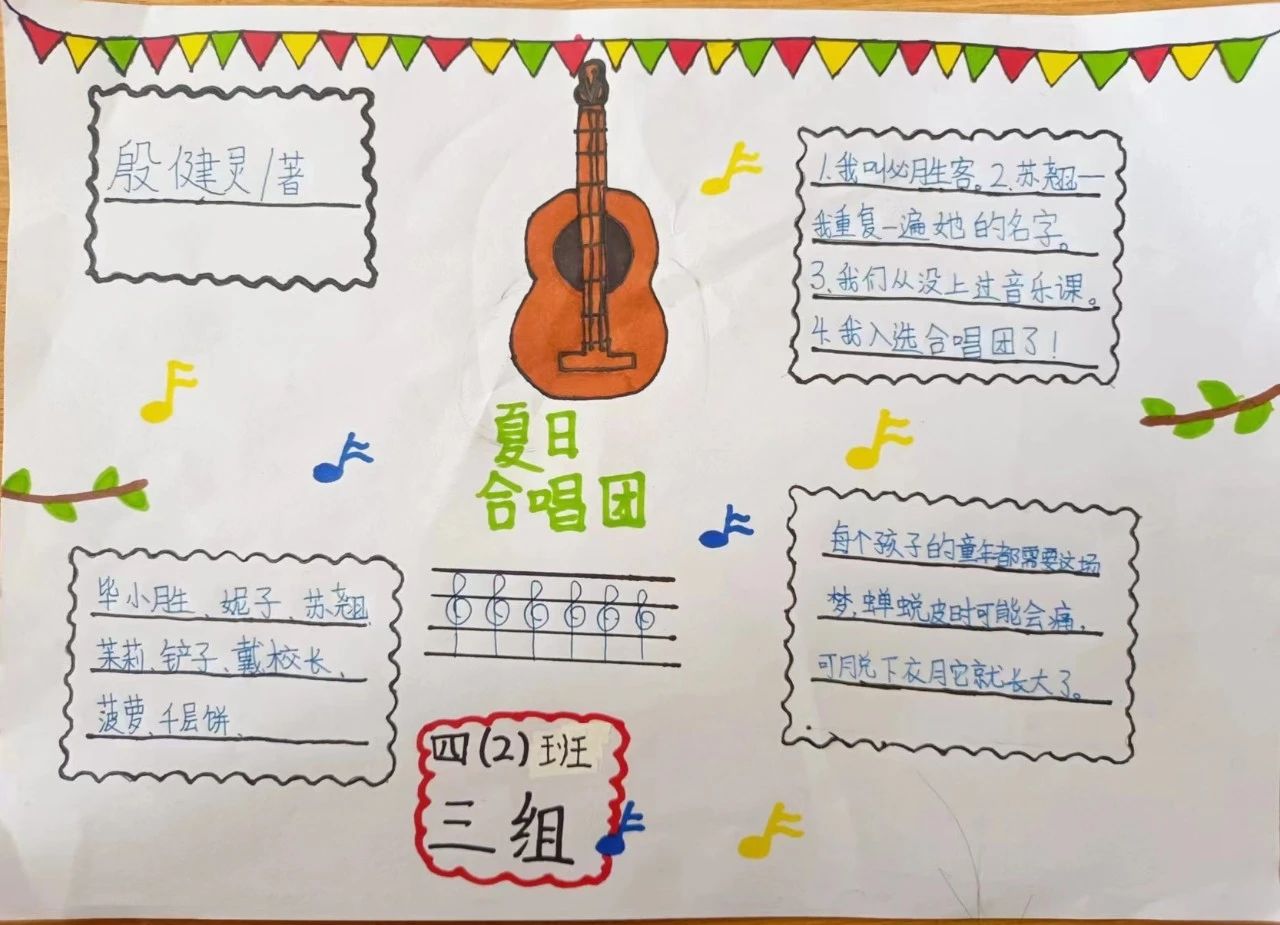 殷健灵/著
1.我叫必胜客。2.苏翘一
我重复一遍她的名字。
3.我们从没上过音乐课。
4.我入选合唱团了!
夏日
合唱团
毕小胜、妮子、苏翘
茉莉、铲子、戴校长、
菠萝、千层饼、
每个孩子的童年都需要这场
梦,蝉蜕皮时可能会痛,
可脱下衣月它就长大了。
四(2)班
三组